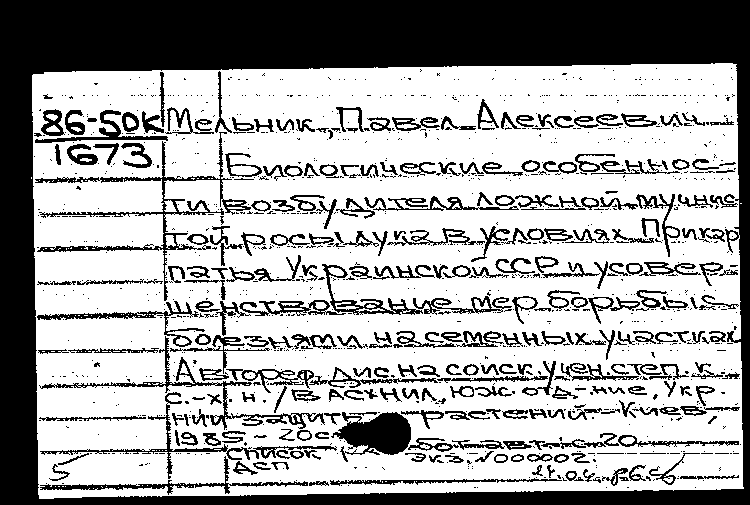 86-5DK Мельник, Павел Алексеевич
1673
Биологические особеннос-
ти возбудителя ложной мучнис
той росы лука в условиях Прикар
патья Украинской ССР и усовер-
шенствование мер борьбы с
болезнями на семенных участках
Автореф. дис. на соиск. учен. степ. к.
с.-х. н. / ВАСХНИЛ, Юж. отд-ние, Укр.
НИИ защиты растений. - Киев,
1985. - 20с
список работ авт.: с. 20
ДСП экз. N000002.
5 24.04.86